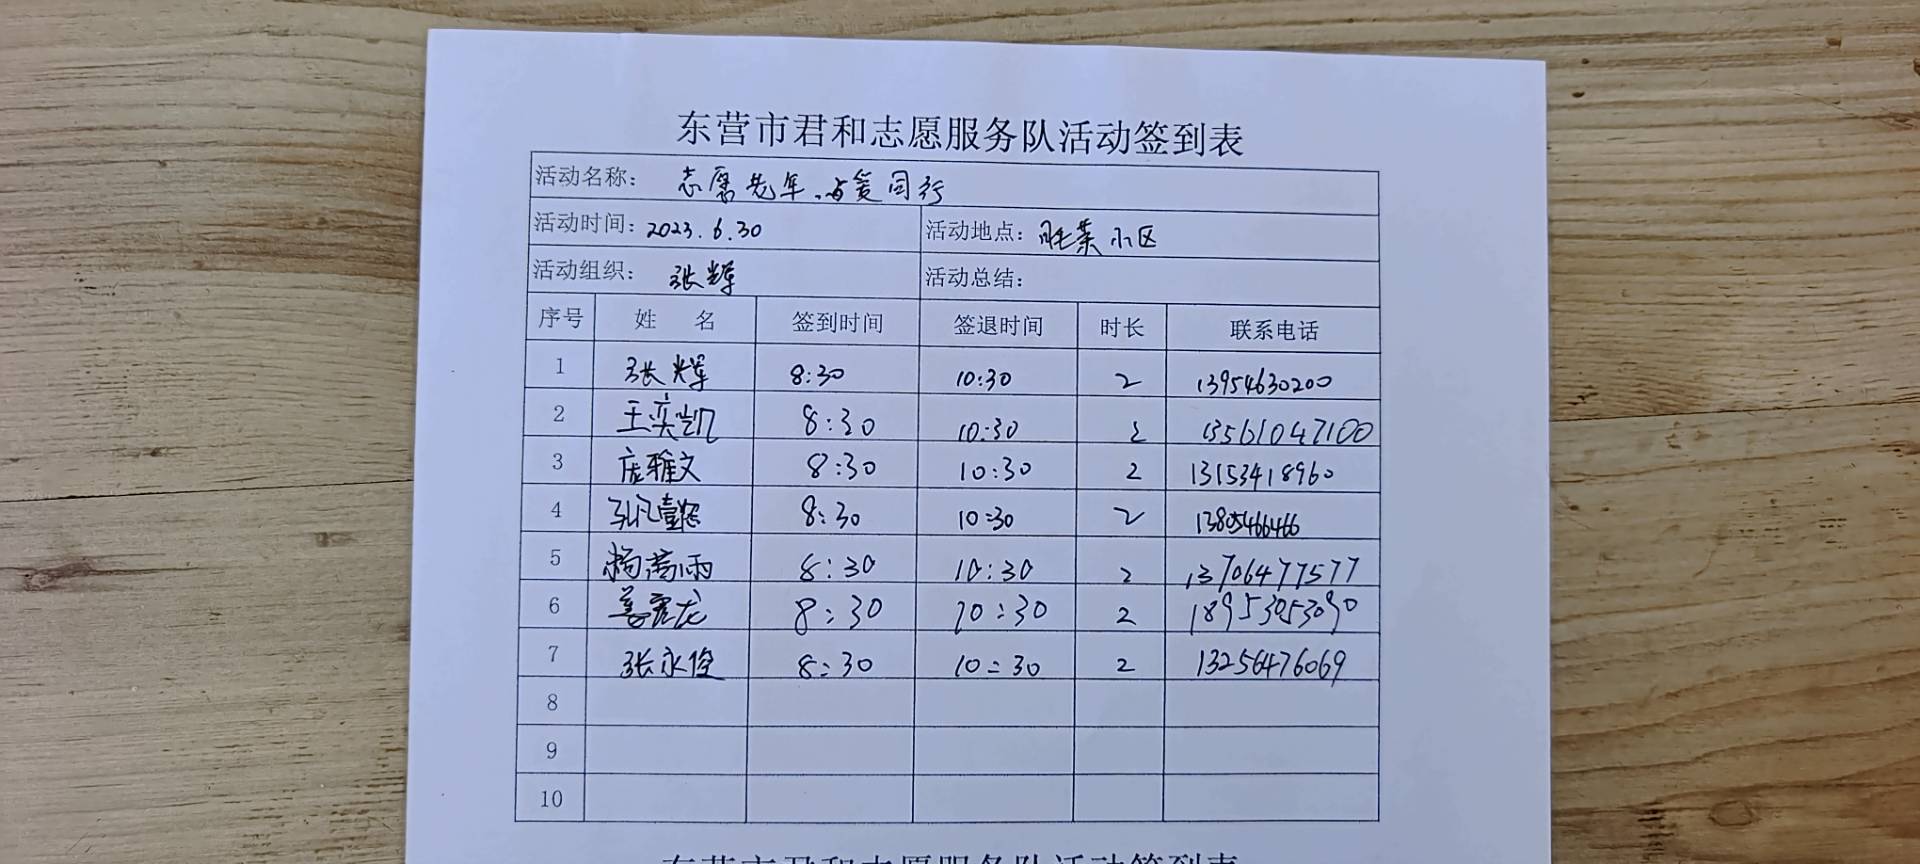 东营市君和志愿服务队活动签到表
活动名称: 志愿老年,与爱同行
活动时间: 2023.6.30 活动地点: 旺菜小区
活动组织: 张辉 活动总结:
序号 姓 名 签到时间 签退时间 时长 联系电话
1 张辉 8:30 10:30 2 13954630200
2 王奕凯 8:30 10:30 2 13561047100
3 庞雅文 8:30 10:30 2 13153418960
4 8:30 10:30 2 13805466466
5 8:30 10:30 2 13706477577
6 姜虎龙 8:30 10:30 2 18953053090
7 张永俊 8:30 10:30 2 13256476069
8
9
10
东营市君和志愿服务队活动签到表